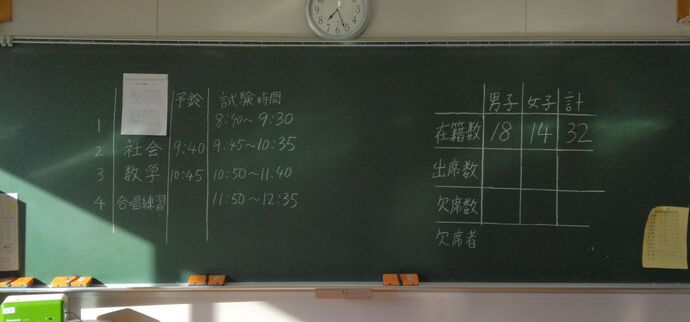 予鈴 試験時間
1 8:40～9:30
2 社会 9:40 9:45～10:35
3 数学 10:45 10:50～11:40
4 合唱練習 11:50～12:35
男子 女子 計
在籍数 18 14 32
出席数
欠席数
欠席者